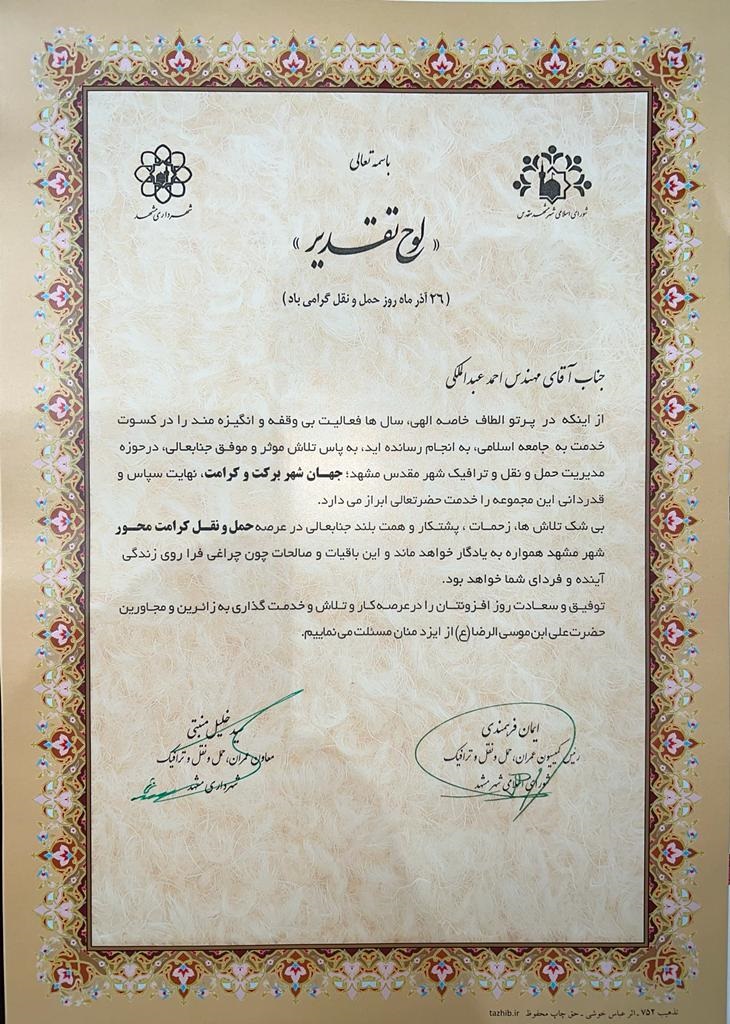 باسمه تعالی
شورای اسلامی شهر مشهد مقدس
شهرداری مشهد
« لوح تقدیر »
( ۲۶ آذر ماه روز حمل و نقل گرامی باد )
جناب آقای مهندس احمد عبدالملکی
از اینکه در پرتو الطاف خاصه الهی، سال ها فعالیت بی وقفه و انگیزه مند را در کسوت
خدمت به جامعه اسلامی، به انجام رسانده اید، به پاس تلاش موثر و موفق جنابعالی، درحوزه
مدیریت حمل و نقل و ترافیک شهر مقدس مشهد؛ جهان شهر برکت و کرامت، نهایت سپاس و
قدردانی این مجموعه را خدمت حضرتعالی ابراز می دارد.
بی شک تلاش ها، زحمات ، پشتکار و همت بلند جنابعالی در عرصه حمل و نقل کرامت محور
شهر مشهد همواره به یادگار خواهد ماند و این باقیات و صالحات چون چراغی فرا روی زندگی
آینده و فردای شما خواهد بود.
توفیق و سعادت روز افزونتان را در عرصه کار و تلاش و خدمت گذاری به زائرین و مجاورین
حضرت علی ابن موسی الرضا (ع) از ایزد منان مسئلت می نماییم.
ایمان فرهمندی
رئیس کمیسیون عمران، حمل و نقل و ترافیک
شورای اسلامی شهر مشهد
سید خلیل منبتی
معاون عمران، حمل و نقل و ترافیک
شهرداری مشهد
تذهیب ۷۵۲ ـ اثر عباس خوشی ـ حق چاپ محفوظ tazhib.ir